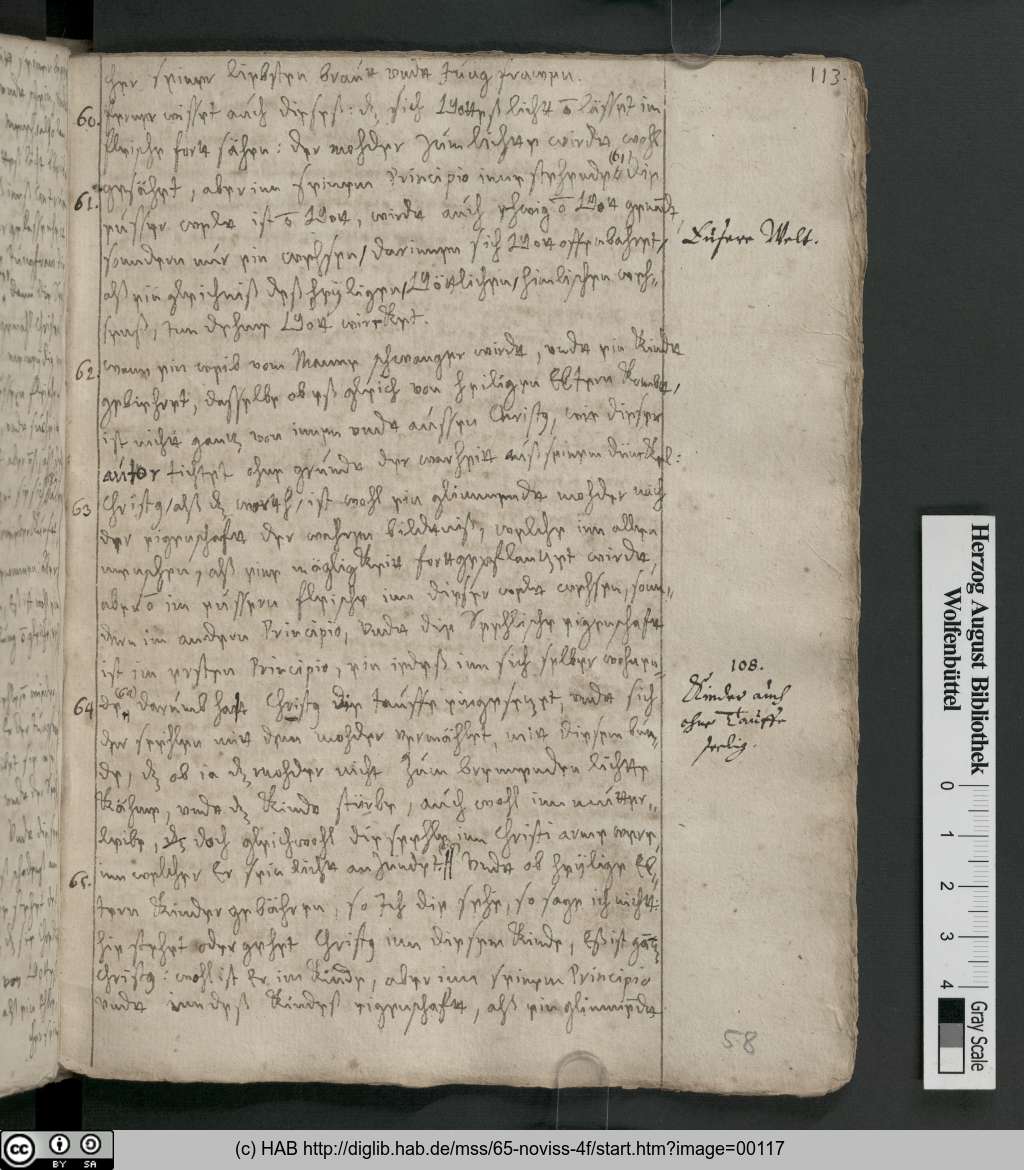 113.
her seiner liebsten braut vndt Jungfrawen.
60. ferner wisset auch dieses: dz sich Gottes licht o lässet im
fleische fort sähen: der mohder zum lichte wirdt wohl
gesähet, aber inn seinem Principio inne stehende (61) die
61. eüsser welt ist o Gott, wirdt auch ehwig o Gott genandt,
sondern nur ein wehsen / darinnen sich Gott offenbahret /
Eüsere Welt.
alß ein gleichnüß deß heyligen / Göttlichen / himlischen weh=
senß, inn dehme Gott wircket.
62. wann ein weib vom Manne schwanger wirdt, vndt ein Kindt
gebiehret, dasselbe ob eß gleich von heiligen Eltern kombt,
ist nicht gantz von innen vndt aussen Christy, wie dieser
autor tichtet ohne grundt der warheit auß seinem dünckel:
63. Christy / alß dz worth / ist wohl ein glimmendt mohder nach
der eigenschafft der wahren bildtnüß, welche inn allen
menschen, alß eine mögligkeit fortgepflantzet wirdt,
aber o im eüssern fleische inn dieser welt wehsen, son=
dern im andern Principio, vndt die Seehlische eigenschafft
ist im ersten Principio, ein iedeß inn sich selber wohnen=
108.
Kinder auch
ohne Tauffe
seelig.
64 de, (64) darumb hatt Christy die tauffe eingesetzt, vndt sich
der seehlen mit dem mohder vermählet, mit diesem bun=
de, dz ob ia dz mohder nicht zum brennenden lichte
kähme, vndt dz Kindt stürbe, auch wohl inn mutter=
leibe, dz doch gleichwohl die seehle inn Christi arme were
inn welcher Er sein licht anzündet. // Vndt ob heylige El=
65. tern Kinder gebähren, so Ich die sehe, so sage ich nicht:
hie stehet oder gehet Christy inn diesem Kinde, Eß ist gantz
Christy: wohl ist Er im Kinde, aber inn seinem Principio
vndt inn deß Kindeß eigenschafft, alß ein glimmendt
58
Herzog August Bibliothek
Wolfenbüttel
0 1 2 3 4
Gray Scale
cc BY SA
(c) HAB http://diglib.hab.de/mss/65-noviss-4f/start.htm?image=00117